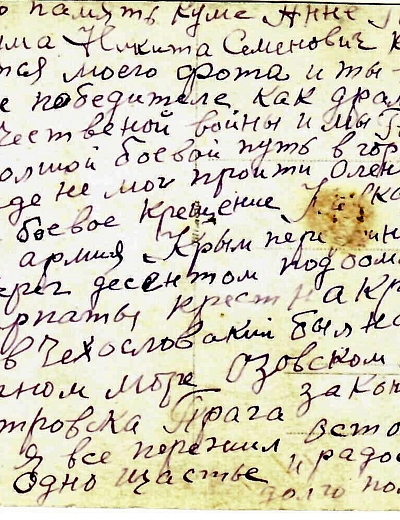 о память куме Анне
ма Никита Семенович
тся моего фота и ты
е победителе как драм
чественой войны и мы
ольшой боевой путь в гор
де не мог пройти Олен
боевое крещение
армия Крым пере
ерег десентом под бом
рпаты крест на кр
в Чехословакии был на
чном море Озовском
тровска Прага закон
Я все пережил всто
Одно щастье и радос
долго по